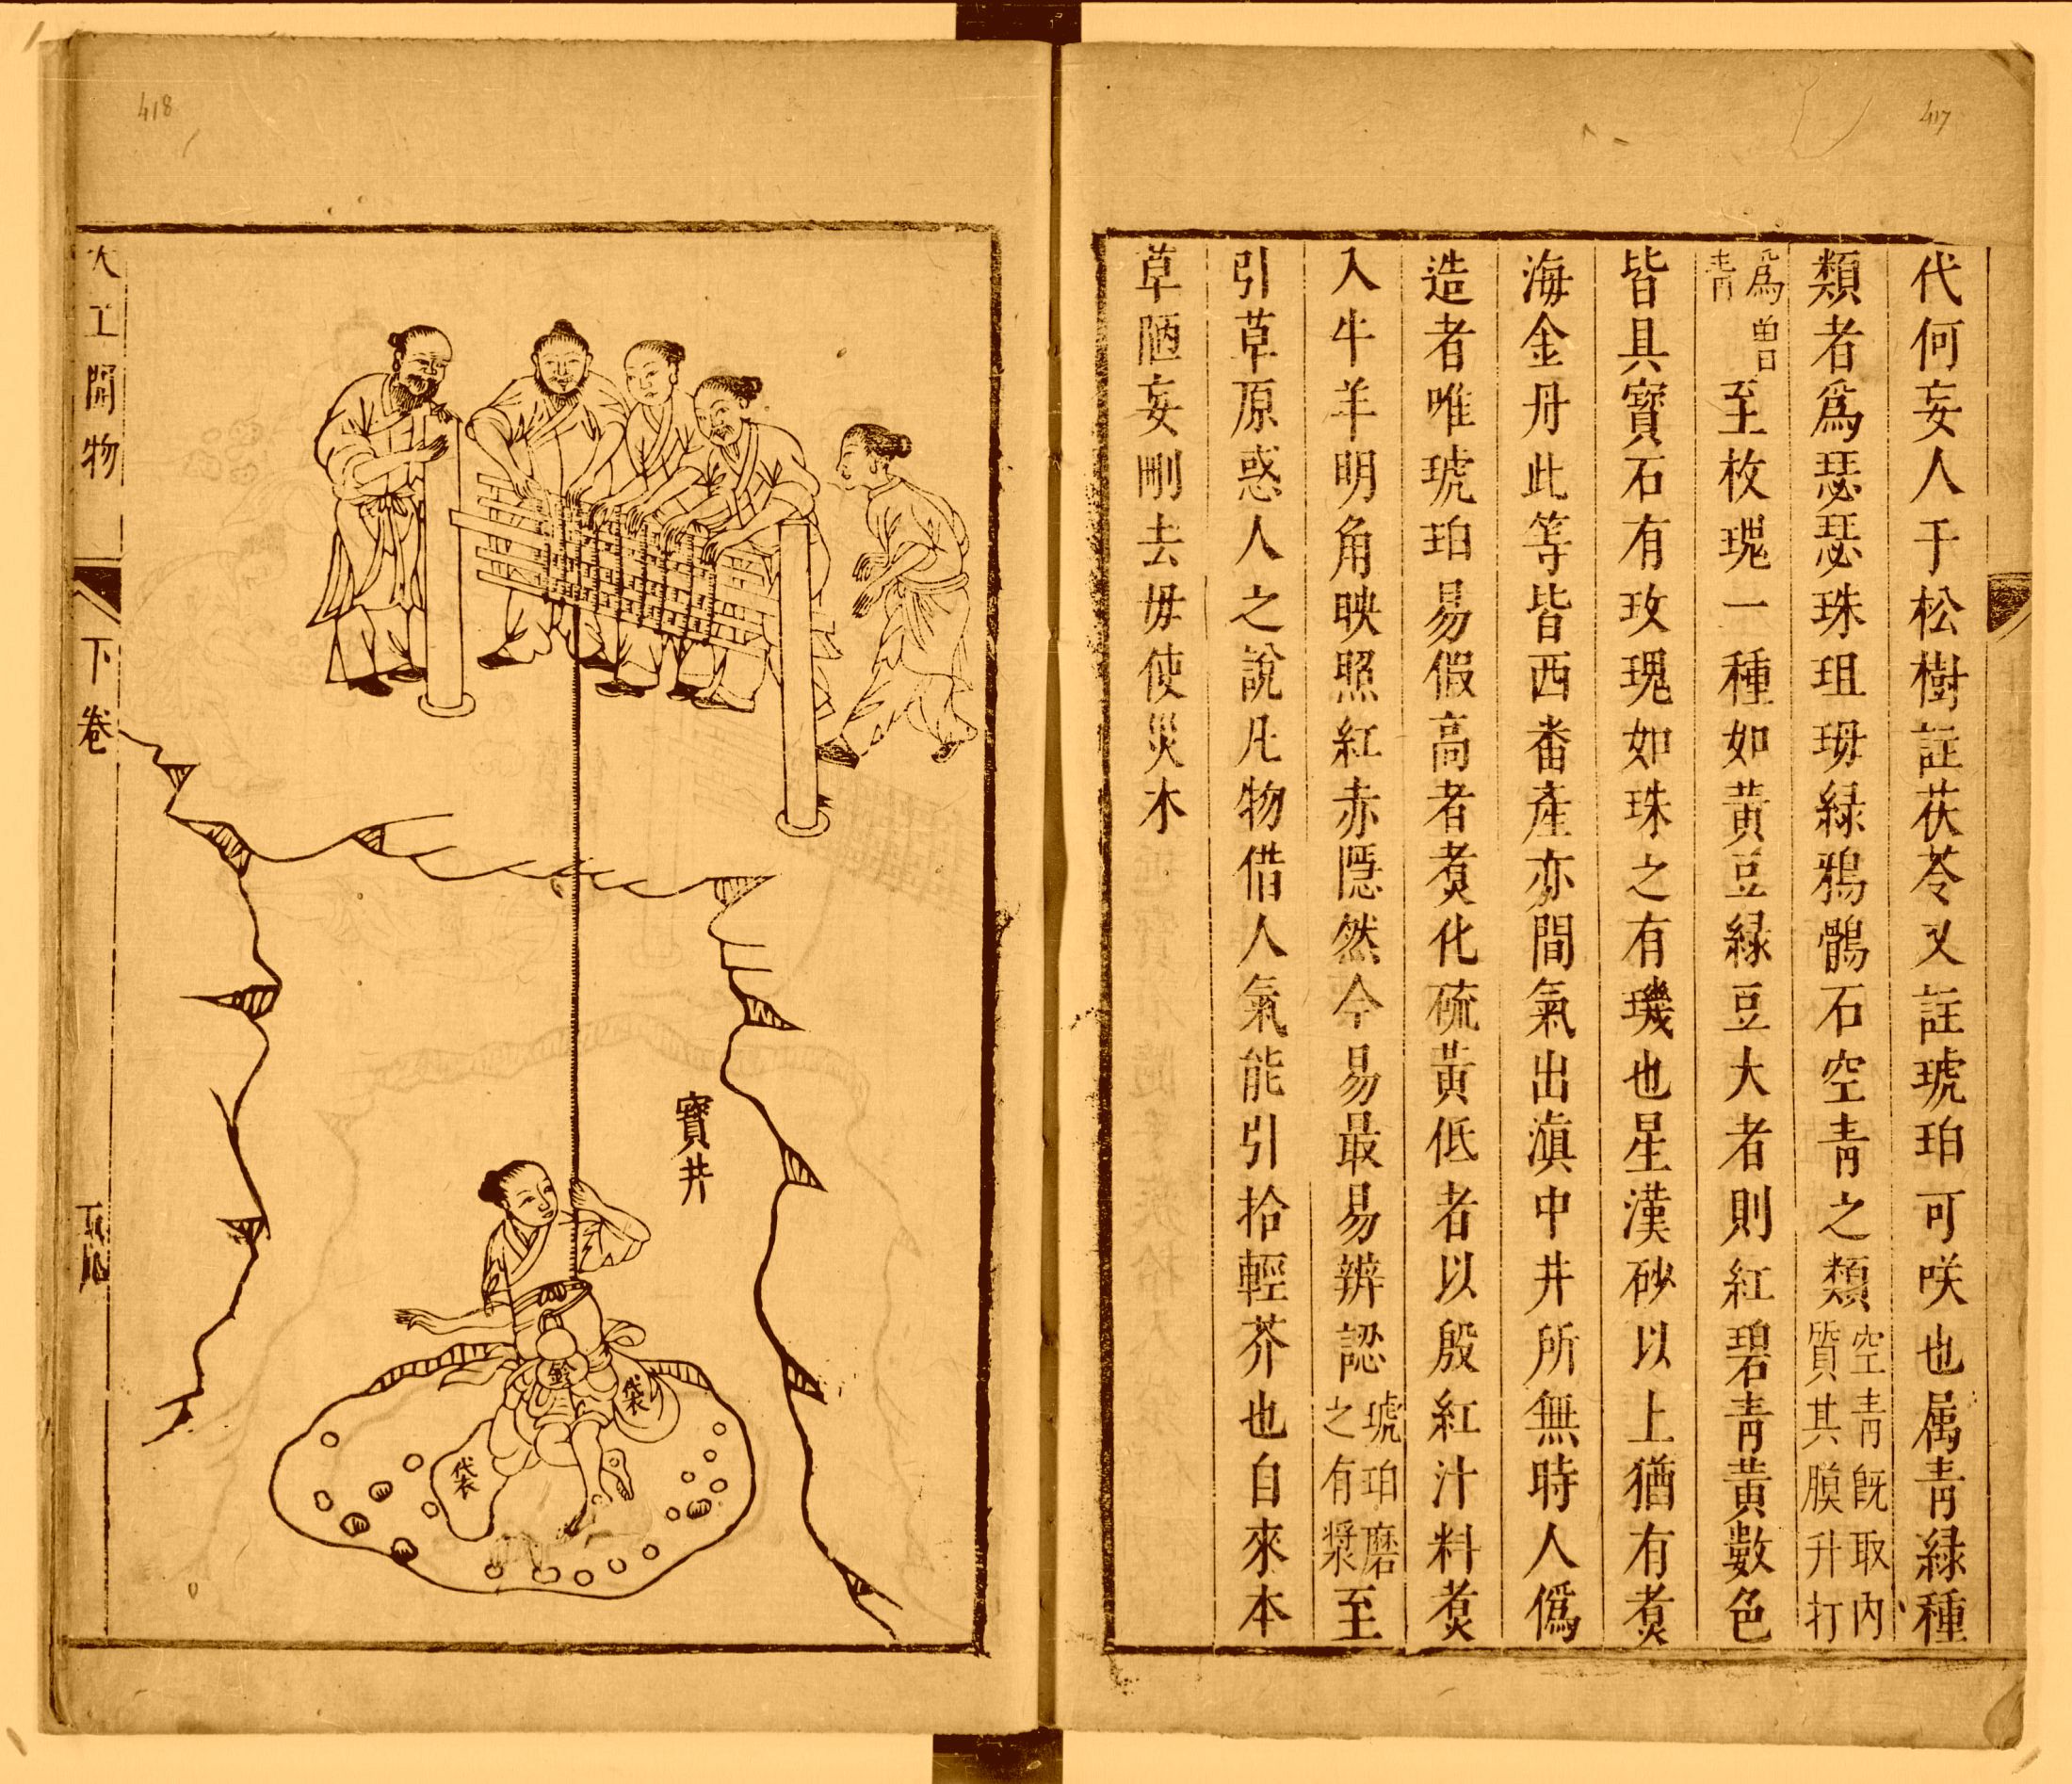 417
代何妄人于松樹註茯苓又註琥珀可咲也属青緑種
類者爲瑟瑟珠珇珻緑鴉鶻石空青之類空青旣取內質其膜升打
爲曽青至枚瑰一種如黃豆緑豆大者則紅碧青黃數色
皆具寳石有玫瑰如珠之有璣也星漢砂以上猶有煑
海金丹此等皆西畨產亦間氣出滇中井所無時人僞
造者唯琥珀易假高者煑化硫黃低者以殷紅汁料煑
入牛羊明角映照紅赤隱然今易最易辨認琥珀磨之有漿至
引草原惑人之說凡物借人氣能引拾輕芥也自來本
草陋妄刪去毋使災木
418
寳井
鈴
袋
袋
工開物
下卷